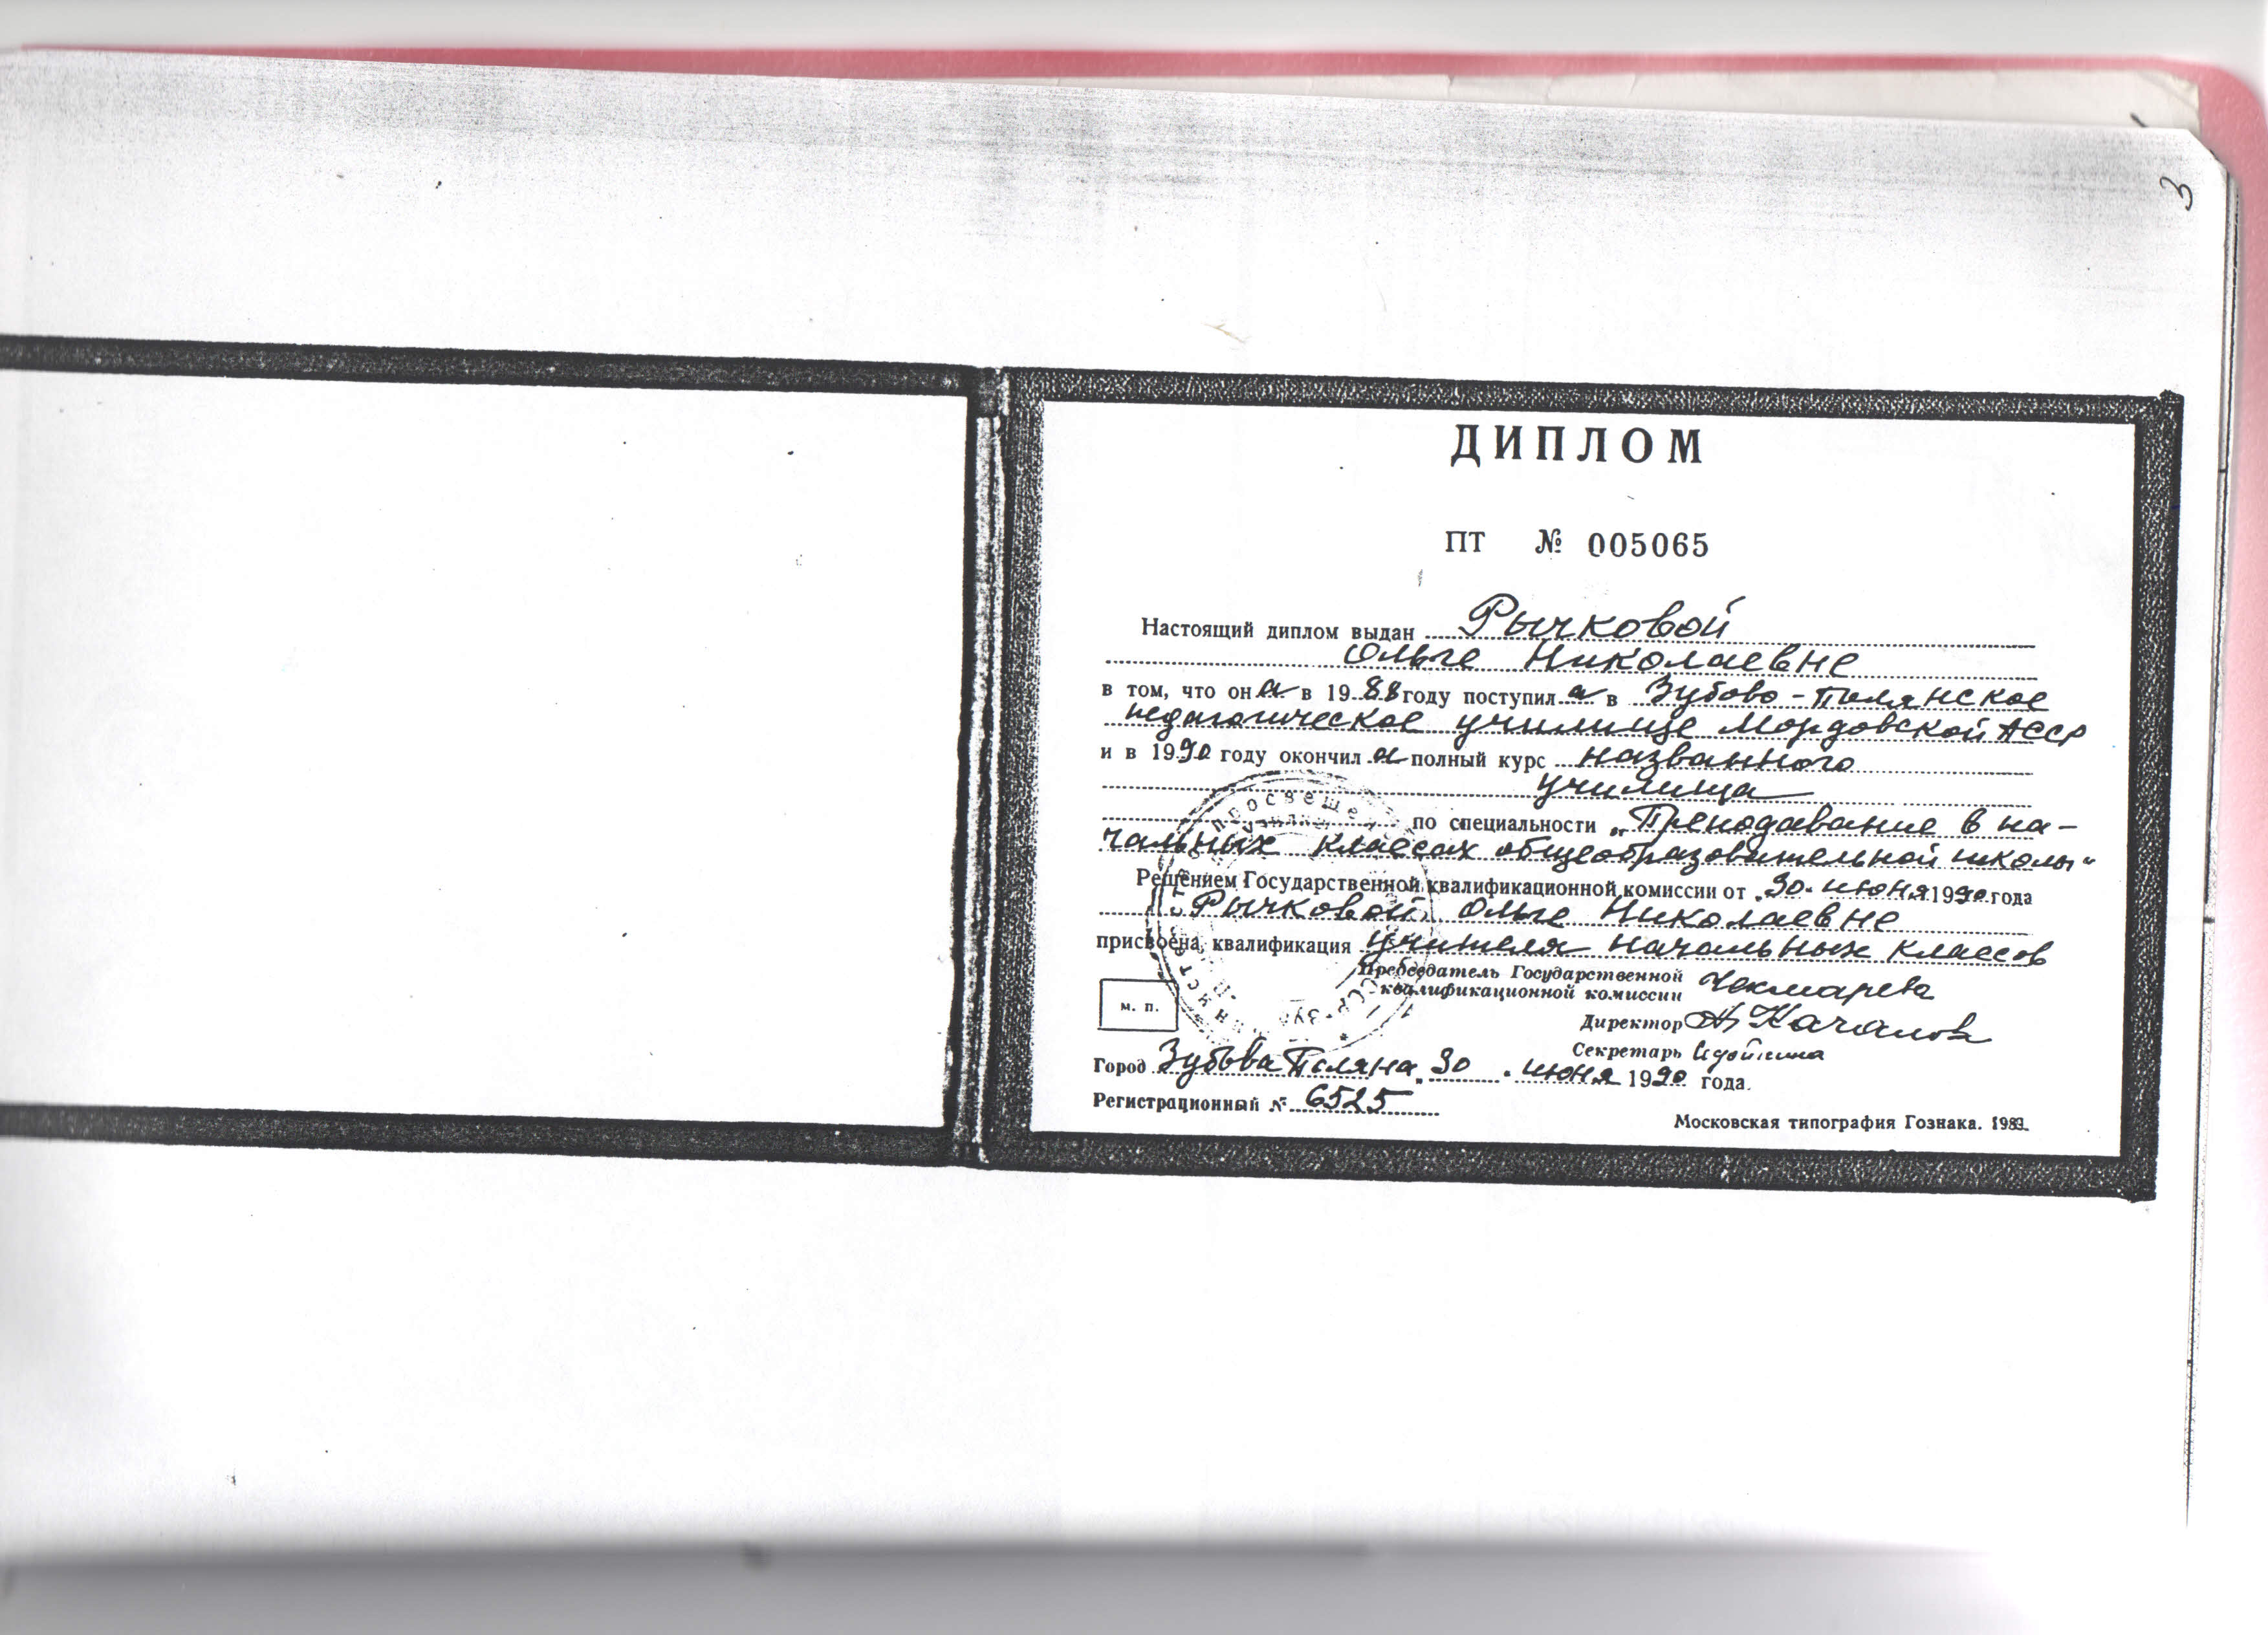 3
ДИПЛОМ
ПТ № 005065
Настоящий диплом выдан Рычковой
Ольге Николаевне
в том, что он а в 19 88 году поступил а в Зубово-Полянское
педагогическое училище Мордовской АССР
и в 1990 году окончил а полный курс названного
училища
по специальности „Преподавание в на-
чальных классах общеобразовательной школы"
Решением Государственной квалификационной комиссии от 30 июня 1990 года
Рычковой Ольге Николаевне
присвоена квалификация учителя начальных классов
Председатель Государственной
квалификационной комиссии Чекмарева
м. п.
Директор Качалов
Секретарь
Город Зубова Поляна 30 июня 1990 года.
Регистрационный № 6525
Московская типография Гознака. 1983.